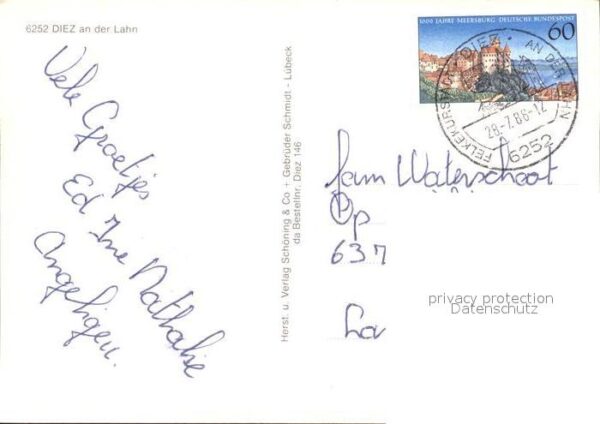 6252 DIEZ an der Lahn
Vele Groetjes
Ed Ine Nathalie
Angelique.
Herst. u. Verlag Schöning & Co + Gebrüder Schmidt - Lübeck
da Bestellnr. Diez 146
1000 JAHRE MEERSBURG DEUTSCHE BUNDESPOST
60
DIEZ · AN DER LAHN
FELKEKURSTADT
28.-7.86-12
6252
fam Waterschoot
Op
637
privacy protection
Datenschutz